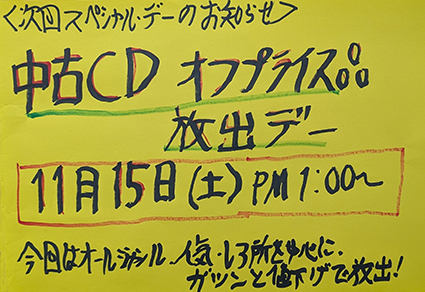 <次回スペシャル・デーのお知らせ>
中古CD オフプライス品
放出デー
11月15日(土)PM1:00〜
今回はオールジャンル、人気・レア所を中心に、
ガツンと値下げで放出!